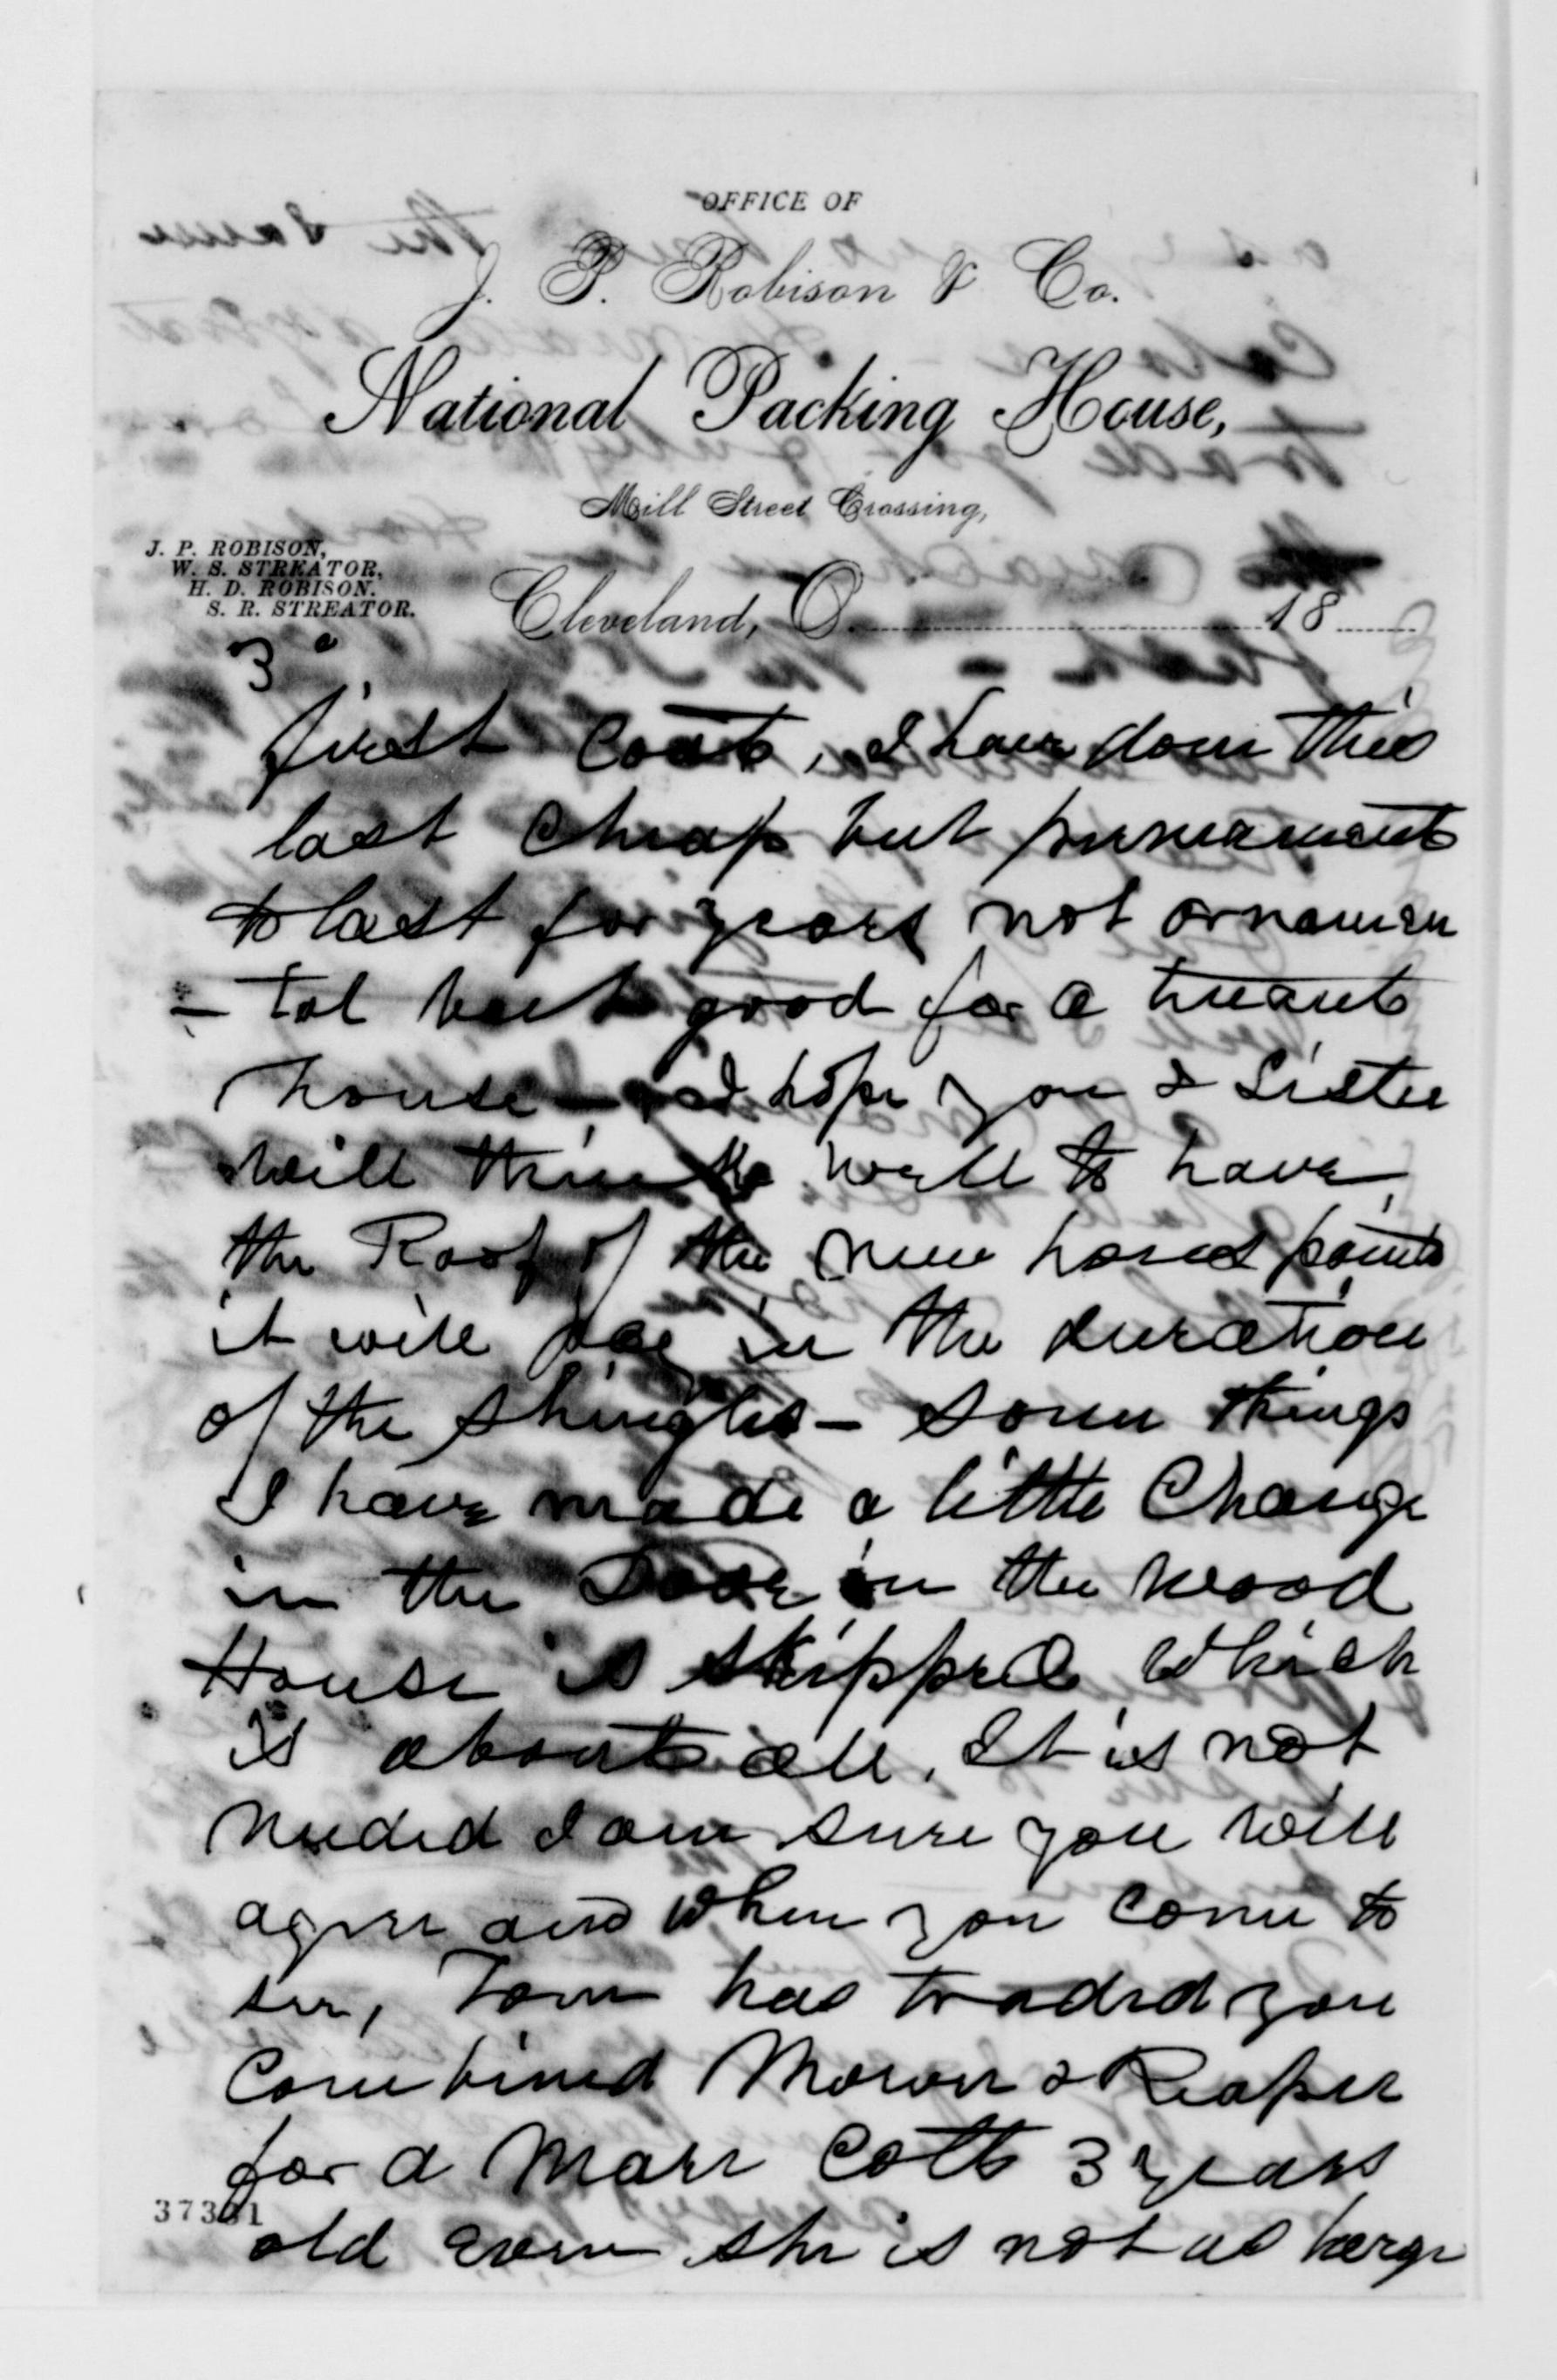 OFFICE OF
J. P. Robison & Co.
National Packing House,
Mill Street Crossing,
J. P. ROBISON,
W. S. STREATOR,
H. D. ROBISON.
S. R. STREATOR.
Cleveland, O. 18
3
first Coat, I have done this
last Cheap but permanent
to last for years not ornamen
- tal but good for a tenant
house - I hope you & Sister
will think well to have
the Roof of the new house paint
it will pay in the duration
of the shingles - Some things
I have made a little Change
in the Door in the Wood
House is skipped which
is about all. It is not
needed I am sure you will
agree and when you come to
see, Tom has traded you
Combined Mower & Reaper
for a Mare Colt 3 years
old even she is not as large